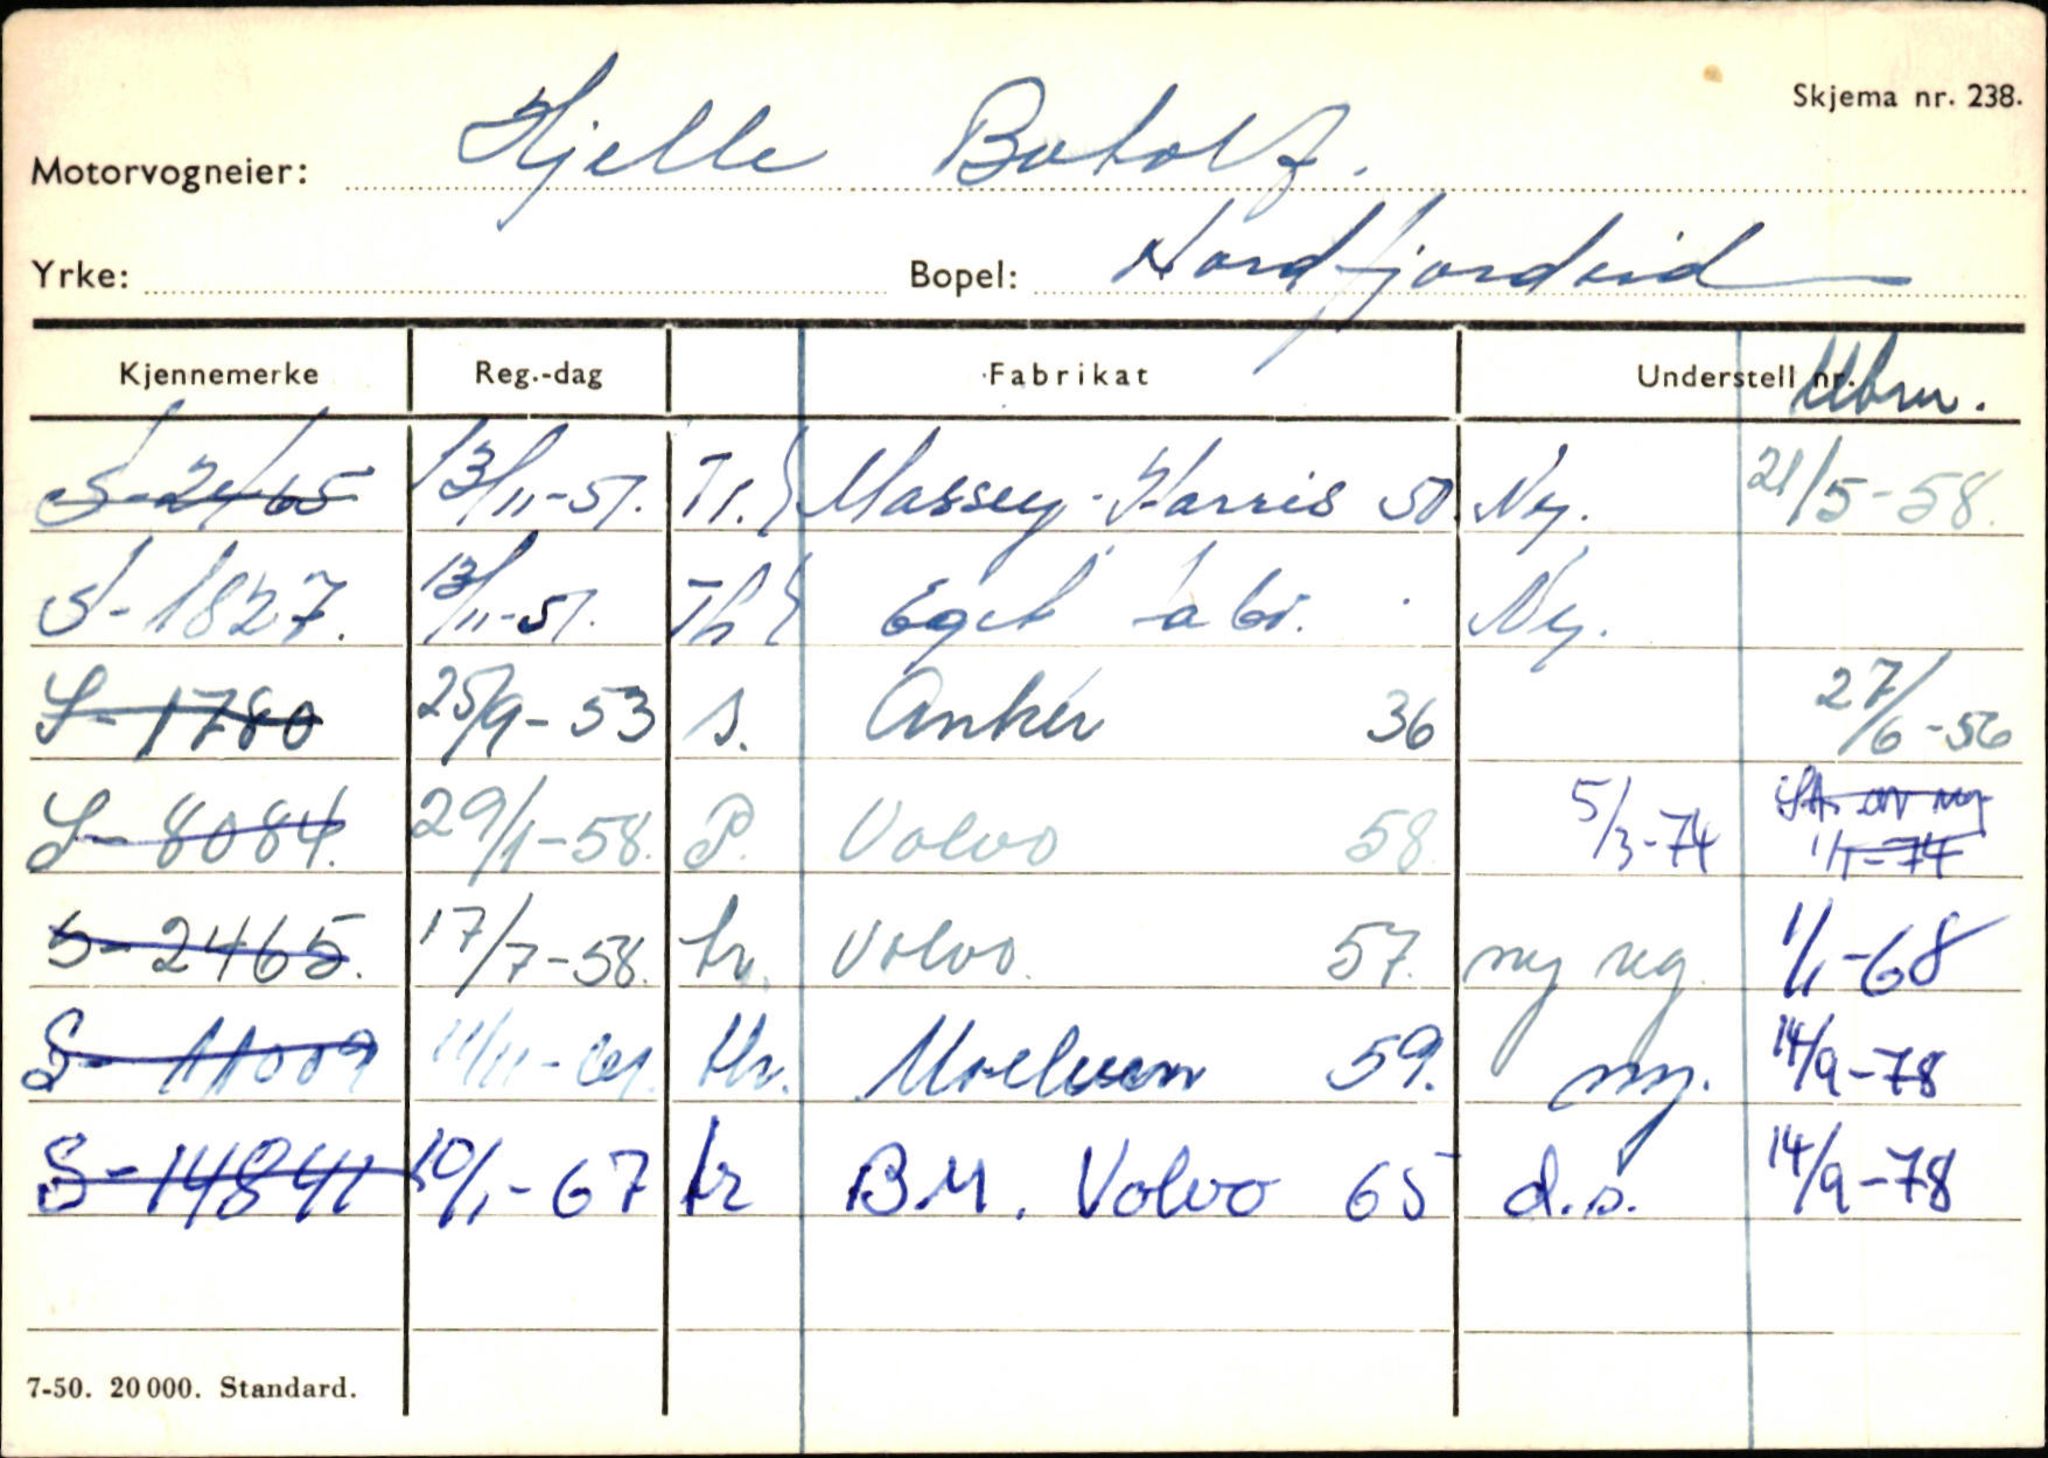 Skjema nr. 238.
Motorvogneier: Hjelle Botolf.
Yrke: Bopel: Nordfjordeid
Kjennemerke Reg.-dag Fabrikat Understell nr. Ubru.
S-2465 13/11-51. Tr. Massey-Harris 50 Ny. 21/5-58.
S-1827. 13/11-51. Th Eget fabr. Ny.
S-1780 25/9-53 s. Anker 36 27/6-56
S-8084. 29/1-58. P. Volvo 58 5/3-74 1/1-74
S-2465. 17/7-58. tr. Volvo. 57. ny reg. 1/1-68
S-11009 11/11-61. thr. Moelven 59. ny. 14/9-78
S-14841 10/1-67 tr B.M. Volvo 65 d.s. 14/9-78
7-50. 20 000. Standard.